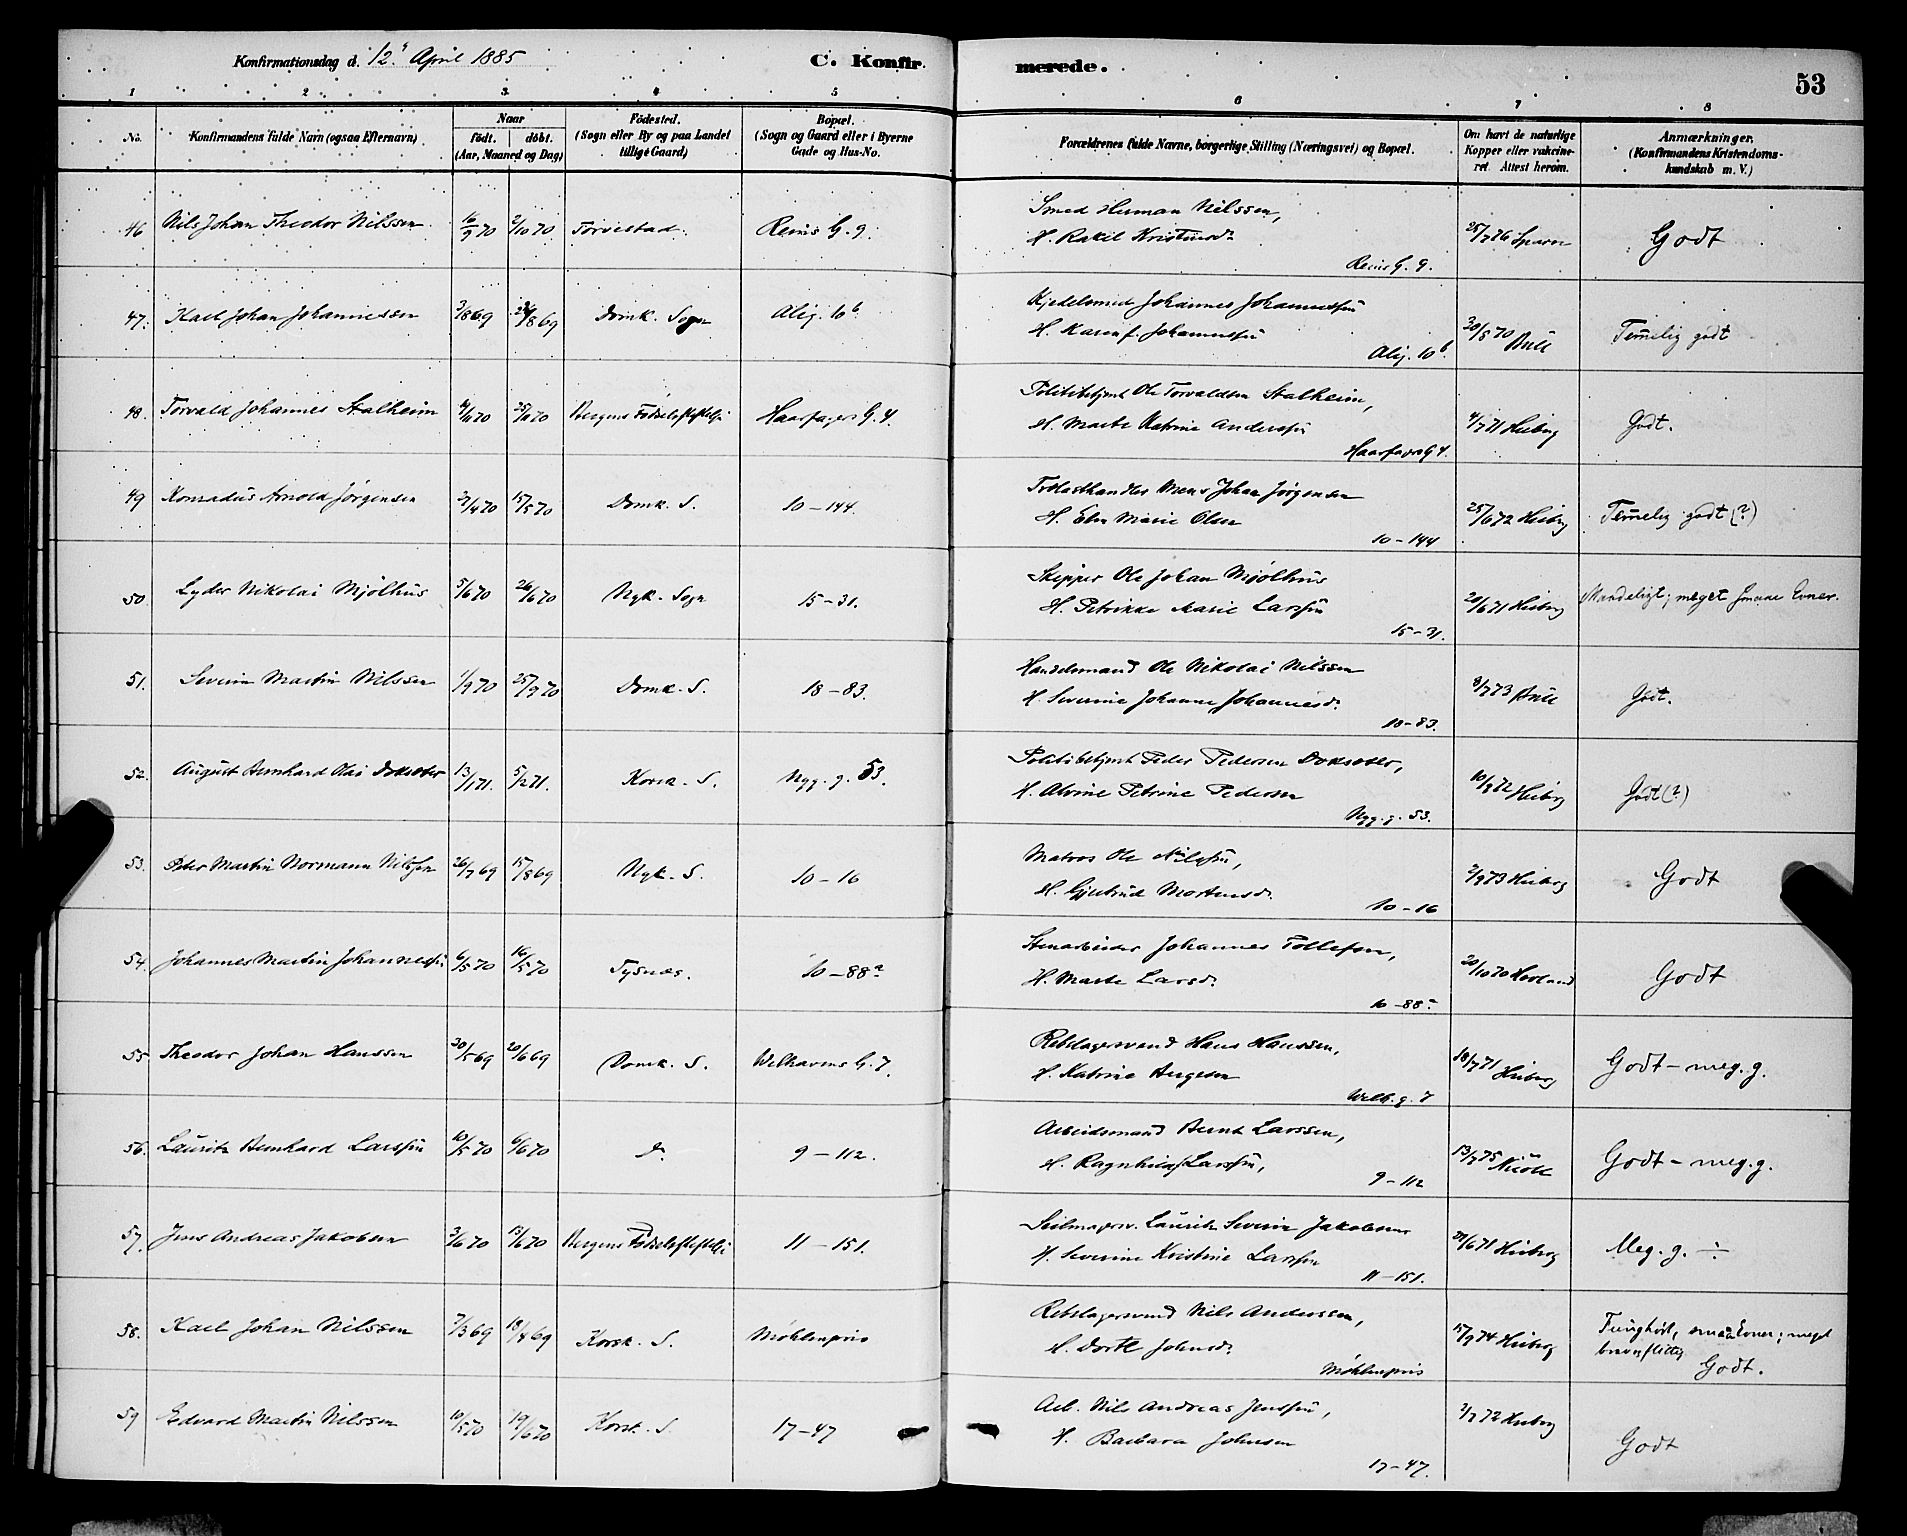 Konfirmationsdag d. 12' April 1885 C. Konfirmerede. 53
1 2 3 4 5 6 7 8
No. Konfirmandens fulde Navn (ogsaa Efternavn) Naar født. døbt. (Aar, Maaned og Dag) Fødested. (Sogn eller By og paa Landet tillige Gaard) Bopæl. (Sogn og Gaard eller i Byerne Gade og Hus-No. Forældrenes fulde Navne, borgerlige Stilling (Næringsvei) og Bopæl. Om havt de naturlige Kopper eller vakcineret. Attest herom. Anmærkninger. (Konfirmandens Kristendomskundskab m. V.)
46 Nils Johan Theodor Nilssen 16/9 70 2/10 70 Torvestad. Reins G. 9. Smed Herman Nilssen, 25/7 76 Godt
H. Rakel Kristinsd.
Reins G. 9.
47. Karl Johan Johannessen 3/8 69 /8 69 Domk. Sogn Alig. 10b Kjedelsmed Johannes Johannessen 30/5 70 Bull Temelig godt
H. Karen f. Johannessen
Alig. 10b.
48. Torvald Johannes Stalheim /11 70 /11 70 Bergens Fødselsstiftelse Haarfagers G. 4. Politibetjent Ole Torvaldsen Stalheim, 4/7 71 Heiberg Godt.
H. Marte Katrine Andersen
Haarfagers G 4.
49 Konradus Arnold Jørgensen /4 70 15/5 70 Domk. S. 10–144. Mons Johan Jørgensen 25/6 72 Heiberg Temelig godt (?)
H. Elen Marie Olsen
10–144
50. Lyder Nikolai Mjølhus 5/6 70 26/6 70 Nyk. Sogn 15–31. Skipper Ole Johan Mjølhus 20/6 71 Heiberg Maadeligt; meget smaae Evner.
H. Petrikke Marie Larsen
15–31.
51. Severin Martin Nilssen 1/9 70 25/9 70 Domk. S. 18–83. Handelsmand Ole Nikolai Nilssen 8/7 73 Bull Godt.
H. Severine Johanne Johannesd.
18–83.
52. August Bernhard Olai Doksæter 13/1 71. 5/2 71. Korsk. S. Nyg. g. 53. Politibetjent Peder Pedersen Doksæter, 10/9 72 Heiberg Godt (?)
H. Alvine Petrine Pedersen
Nyg. g. 53.
53. Peter Martin Normann Nilssen 26/7 69 15/8 69 Nyk. S. 10–16 Matros Ole Nilssen, 2/9 73 Heiberg Godt
H. Gjertrud Mortensd.
10–16
54. Johannes Martin Johannessen 6/5 70 16/5 70 Tysnæs. 10–88a Stenarbeider Johannes Tollefsen, 20/10 70 Godt
H. Marte Larsd.
10–88a
55. Theodor Johan Hanssen 30/5 69 20/6 69 Domk. S. Welhavens G. 7. Rebslagersvend Hans Hanssen, 18/7 71 Heiberg Godt–meg. g.
H. Katrine Børgesen
Welh. g. 7
56. Lauritz Bernhard Larssen 10/5 70 6/6 70 d. 9–112. Arbeidsmand Bernt Larssen, 13/7 75 Godt–meg. g.
H. Ragnhild Larssen,
9–112
57. Jens Andreas Jakobsen 3/6 70 13/6 70 Bergens Fødselsstiftelse 11–151. Seilmagersv. Lauritz Severin Jakobsen /6 71 Heiberg Meg. g. ÷
H. Severine Kristine Larssen
11–151.
58. Karl Johan Nilssen 7/3 69 18/4 69 Korsk. S. Møhlenpris Rebslagersvend Nils Anderssen, 15/9 74 Heiberg Tunghørt, smaa Evner; meget
H. Dorte Johnsd. brav og flittig
Møhlenpris Godt.
59 Edvard Martin Nilssen 10/5 70 19/6 70 Korsk. S. 17–47 Arb. Nils Andreas Jenssen, 2/7 72 Heiberg Godt
H. Barbara Johnsen
17–47.